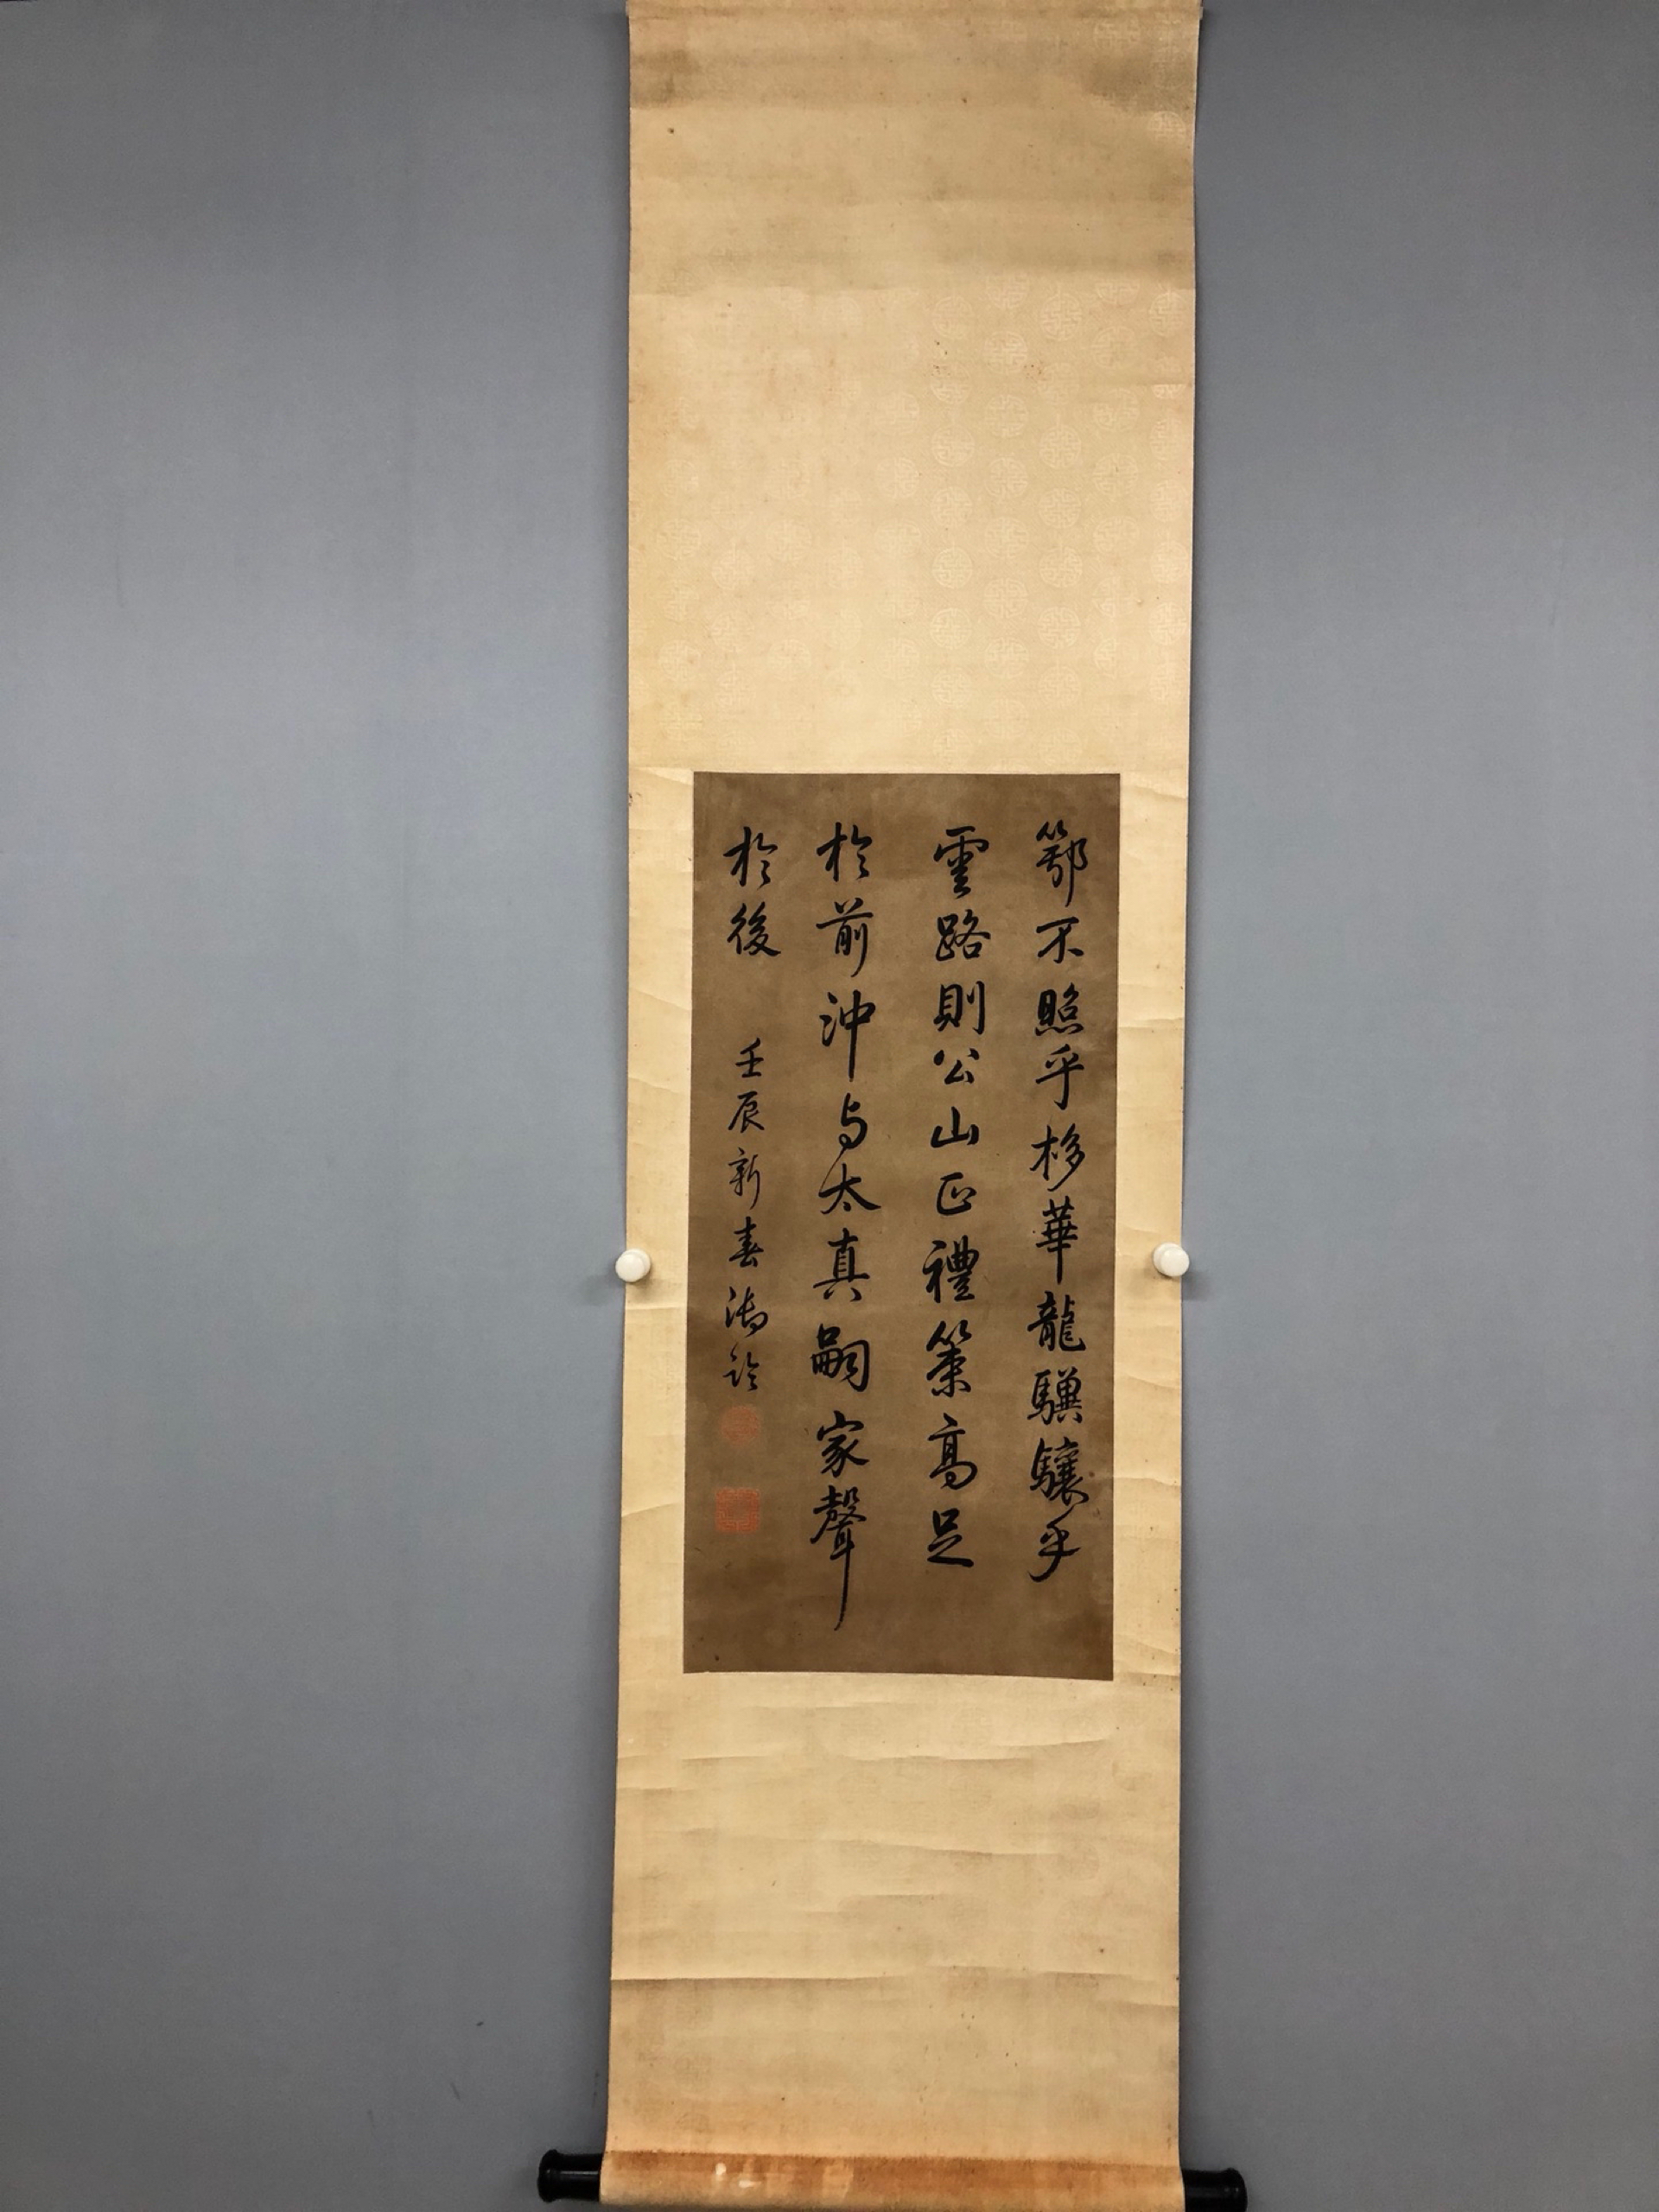 鄂不照乎栘華龍驥驤乎
雲路則公山正禮策高足
於前沖与太真嗣家聲
於後
壬辰新春